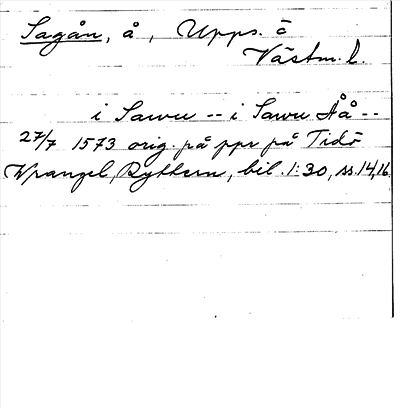 Sagån, å, Upps. o
Västm. l.
i Sawu -- i Sawu Åå --
27/7 1573 orig. på ppr på Tidö
Wrangel, Ryttern, bil. 1:30, ss. 14, 16